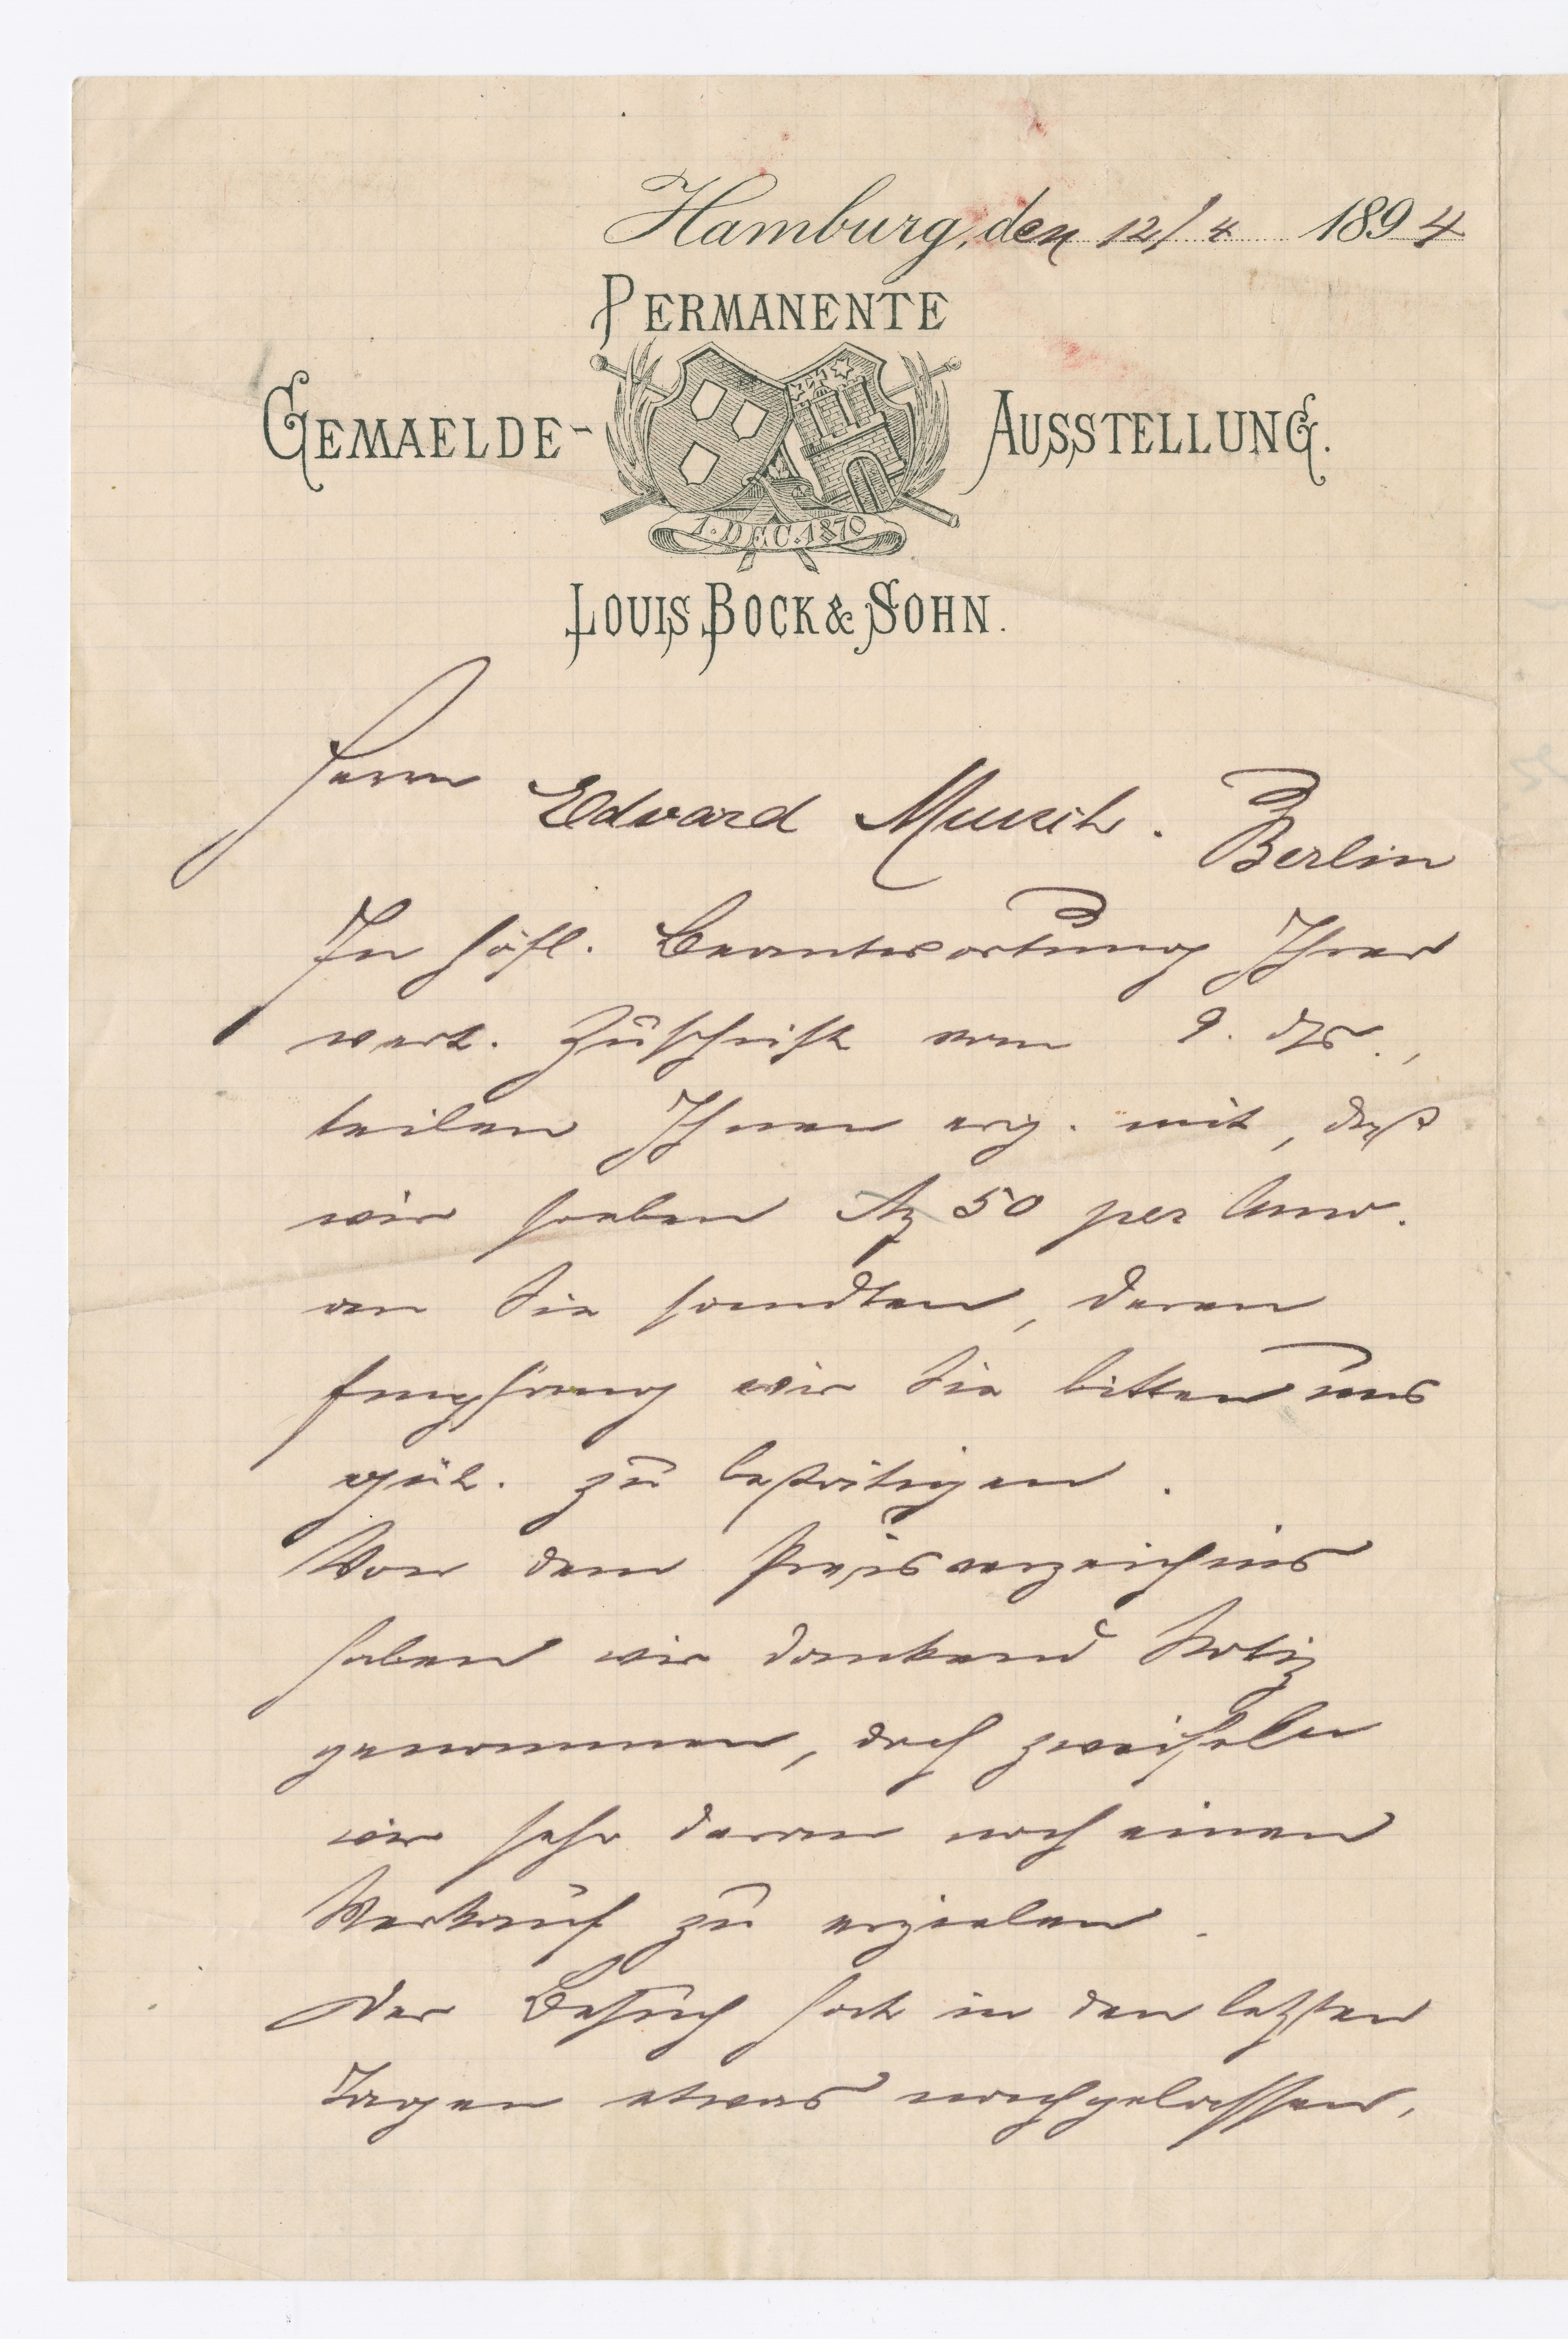 Hamburg, den 12/4 1894
PERMANENTE
GEMAELDE- AUSSTELLUNG.
1. DEC. 1870
LOUIS BOCK & SOHN.
Herrn Edvard Munch. Berlin
In höfl. Beantwortung Ihrer
wert. Zuschrift vom 9. ds.,
teilen Ihnen erg. mit, daß
wir soeben M 50 per Anw.
an Sie sandten, deren
Empfang wir Sie bitten uns
güt. zu bestätigen.
Von dem Preisverzeichnis
haben wir dankend Notiz
genommen, doch zweifeln
wir sehr daran noch einen
Verkauf zu erzielen.
Der Besuch hat in den letzten
Tagen etwas nachgelassen,